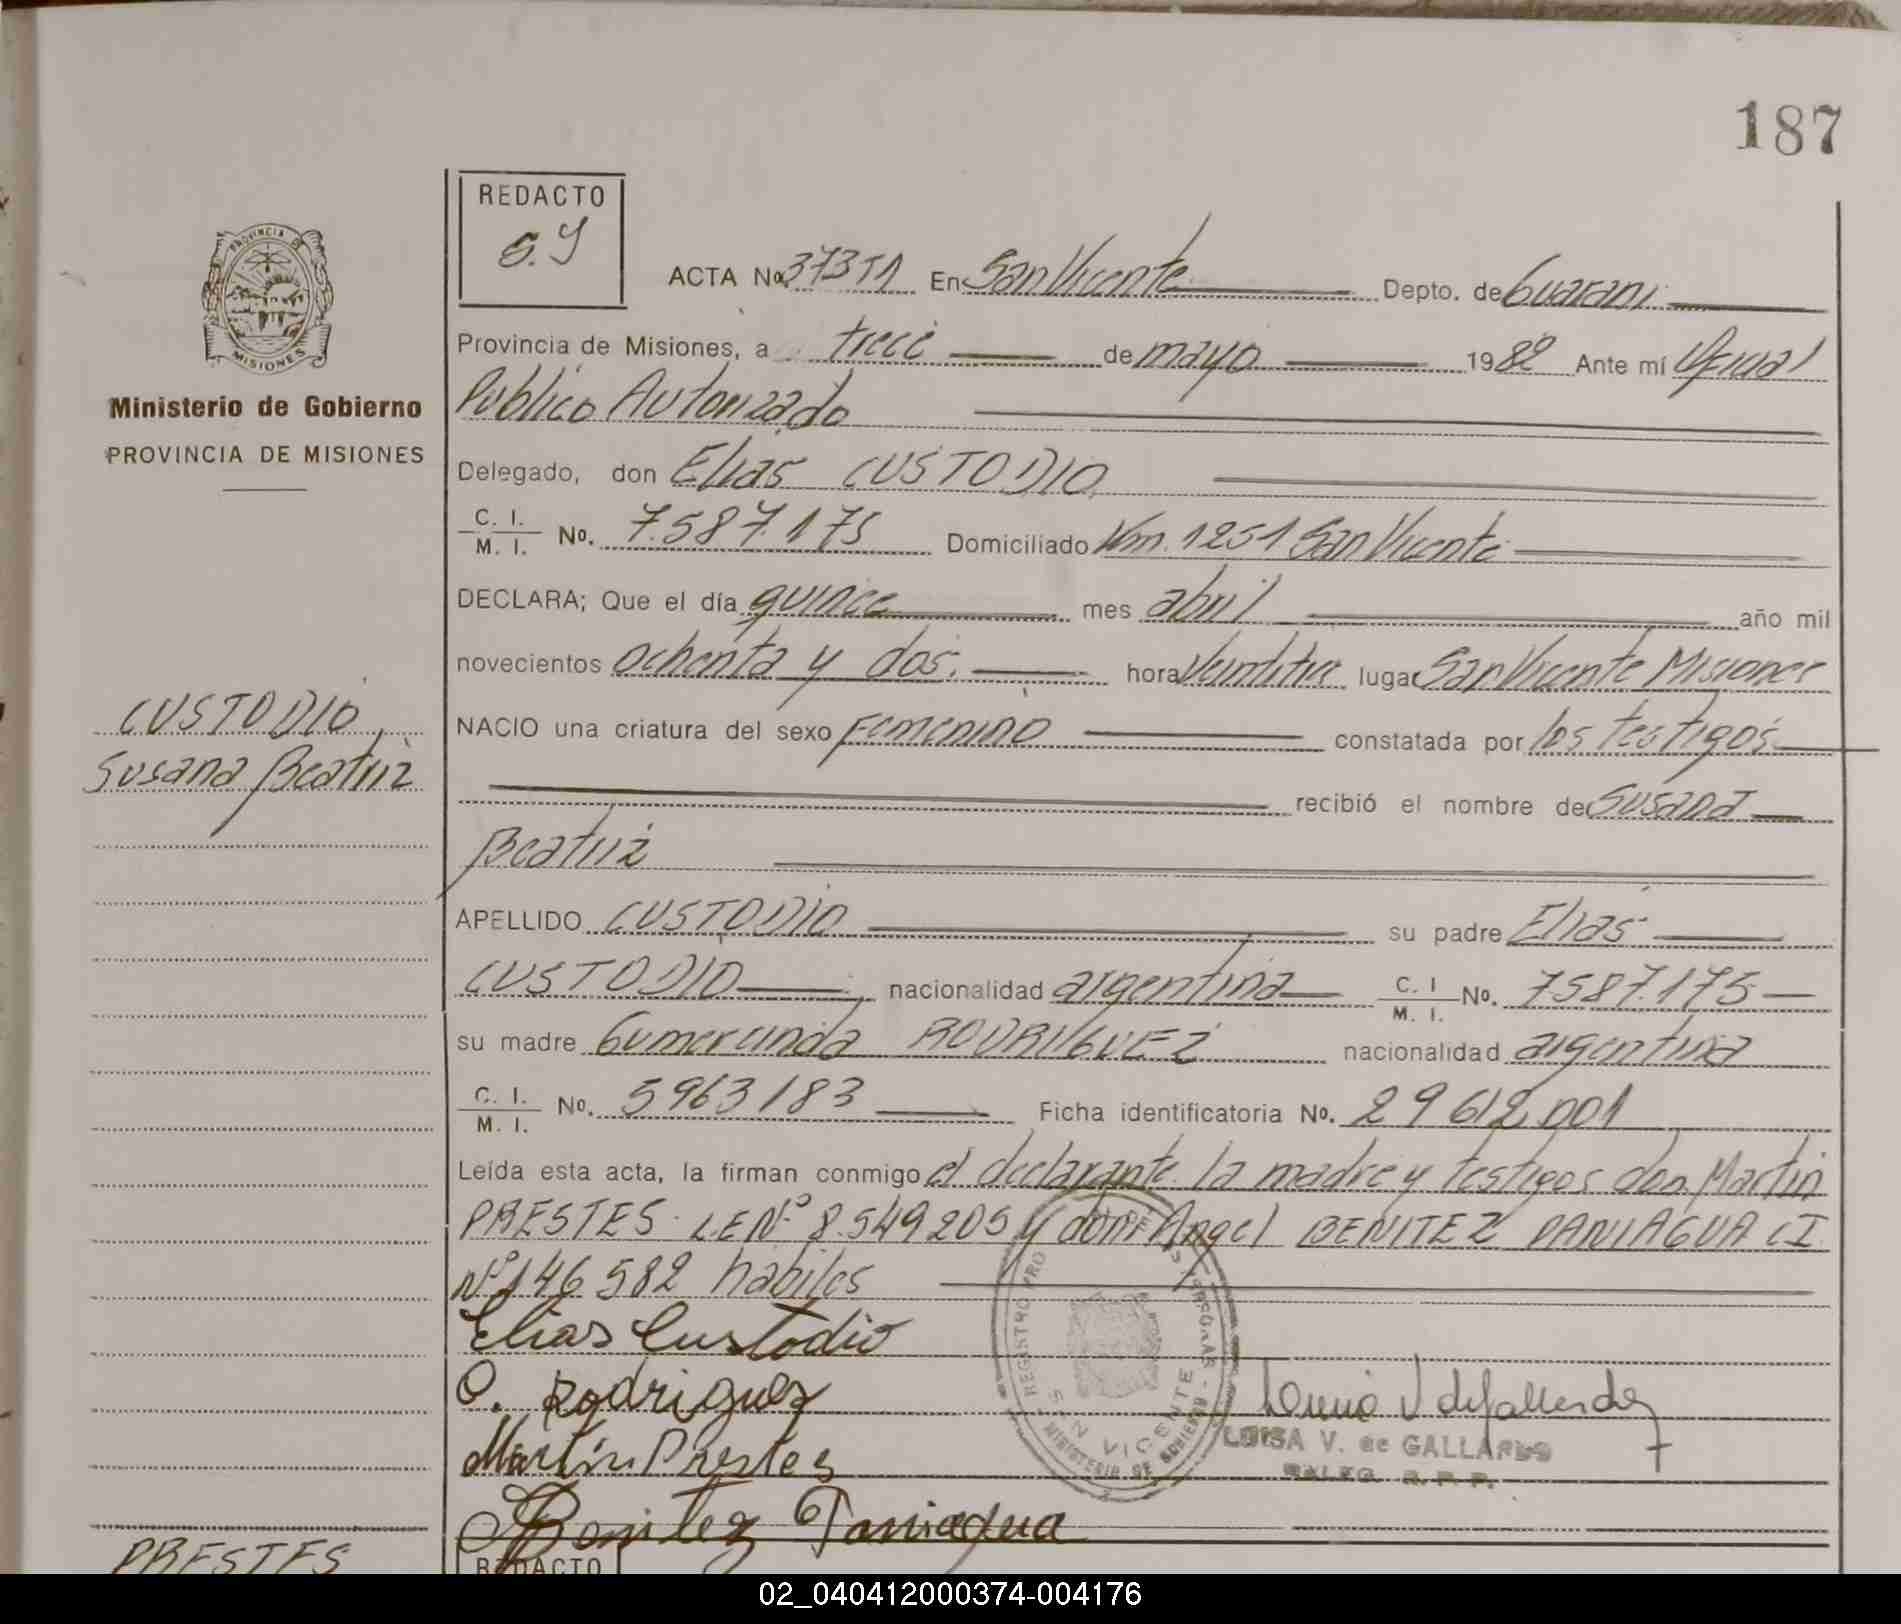 187
REDACTO
S.Y
PROVINCIA DE
MISIONES
Ministerio de Gobierno
PROVINCIA DE MISIONES
ACTA No. 373T1 En San Vicente Depto. de Guaraní
Provincia de Misiones, a trece de mayo 1982 Ante mí Oficial
Público Autorizado
Delegado, don Elias CUSTODIO
C. I. M. I. No. 7.587.175 Domiciliado Km. 1251 San Vicente
DECLARA; Que el día quince mes abril año mil
novecientos ochenta y dos. hora veintitre lugar San Vicente Misiones
CUSTODIO
Susana Beatriz
NACIO una criatura del sexo Femenino constatada por los testigos
recibió el nombre de Susana
Beatriz
APELLIDO CUSTODIO su padre Elias
CUSTODIO nacionalidad argentina C. I M. I. No. 7587.175
su madre Gumercinda RODRIGUEZ nacionalidad argentina
C. I. M. I. No. 5963183 Ficha identificatoria No. 29612001
Leída esta acta, la firman conmigo el declarante la madre y testigos don Martin
PRESTES LE Nº 8.549205 y don Angel BENITEZ PANIAGUA CI
Nº 146582 habiles
Elias Custodio
G. Rodriguez
Martín Prestes
Benitez Paniagua
REGISTRO PRO
PERSONAS
SAN VICENTE
MINISTERIO DE GOBIERNO
LUISA V. de GALLARDO
DELEG. R. P. P.
PRESTES
REDACTO
02_040412000374-004176